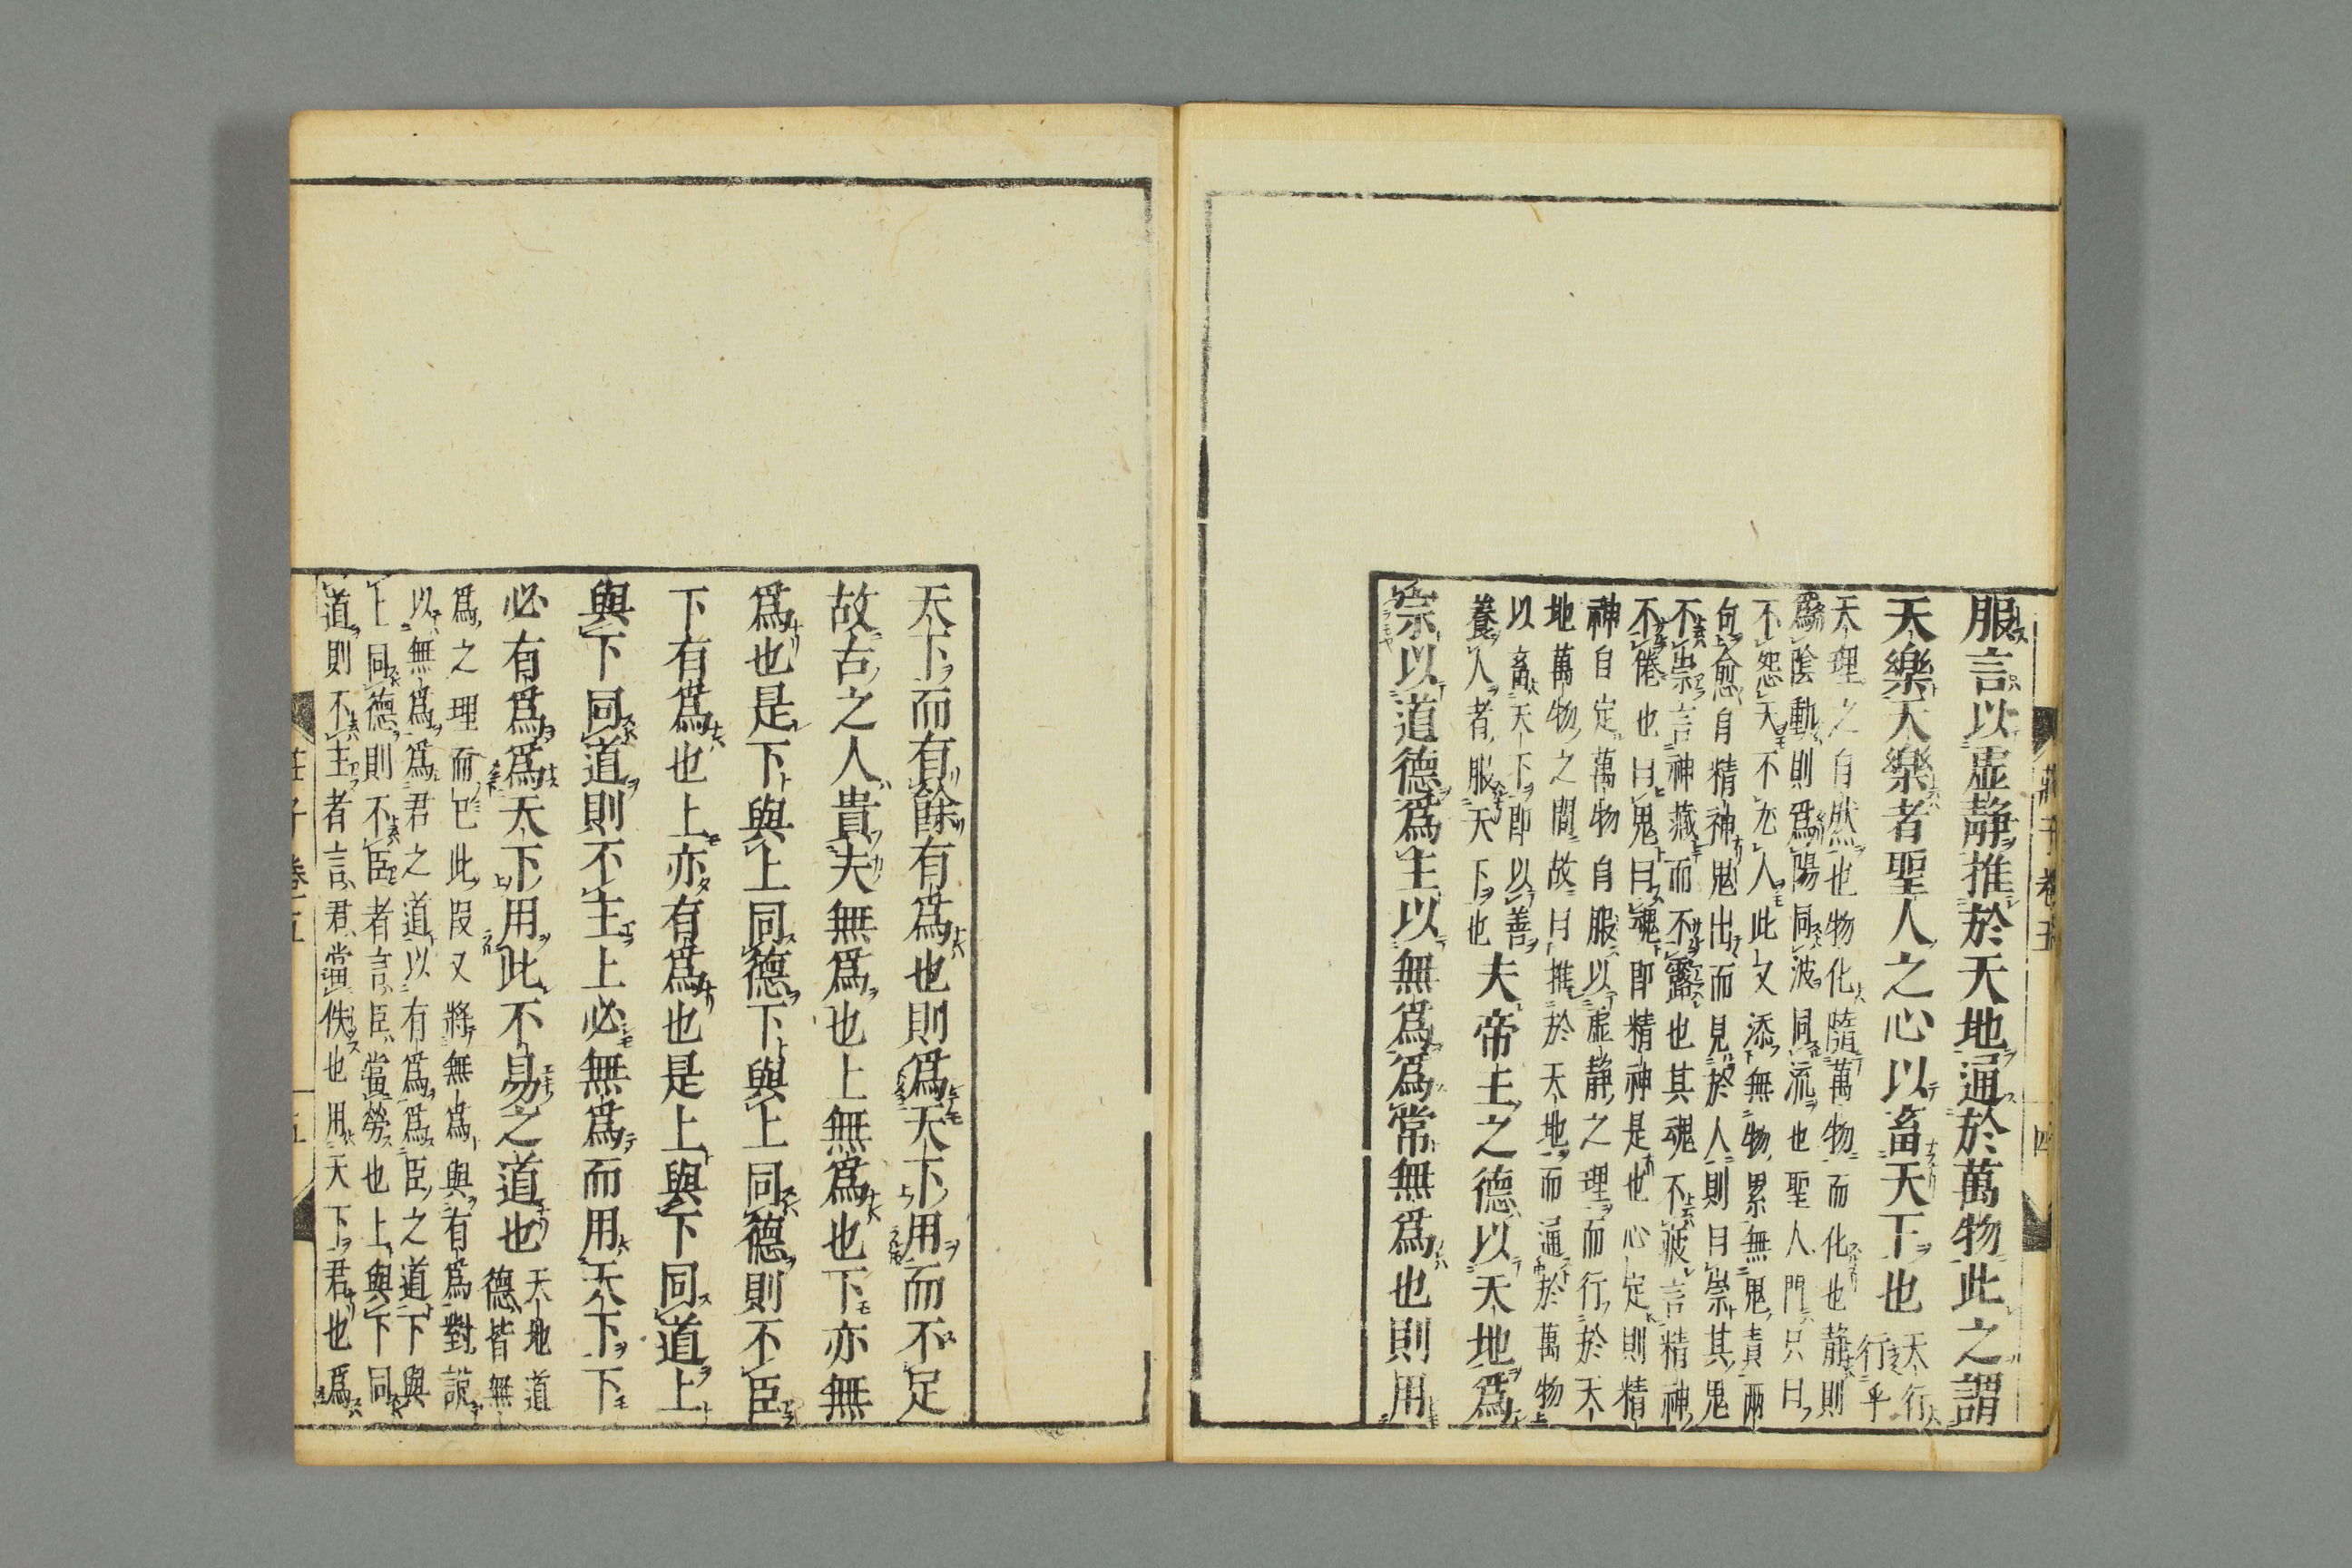 莊子卷五
四
服言以虛靜推於天地通於萬物此之謂
天樂天樂者聖人之心以畜天下也
天行
行乎
天理之自然也物化隨萬物而化也靜則
爲陰動則爲陽同波同流也聖人門只曰
不怨天不尤人此又添無物累無鬼責兩
句愈自精神鬼出而見於人則曰祟其鬼
不祟言神藏而不露也其魂不疲言精神
不倦也曰鬼曰魂即精神是也心定則精
神自定萬物自服以虛靜之理而行於天
地萬物之間故曰推於天地而通於萬物
以畜天下即以善
養人者服天下也
夫帝王之德以天地爲
宗以道德爲主以無爲爲常無爲也則用
天下而有餘有爲也則爲天下用而不足
故古之人貴夫無爲也上無爲也下亦無
爲也是下與上同德下與上同德則不臣
下有爲也上亦有爲也是上與下同道上
與下同道則不主上必無爲而用天下下
必有爲爲天下用此不易之道也
天地道
德皆無
爲之理而已此段又將無爲與有爲對說
以無爲爲君之道以有爲爲臣之道下與
上同德則不臣者言臣當勞也上與下同
道則不主者言君當佚也用天下君也爲
莊子卷五
五